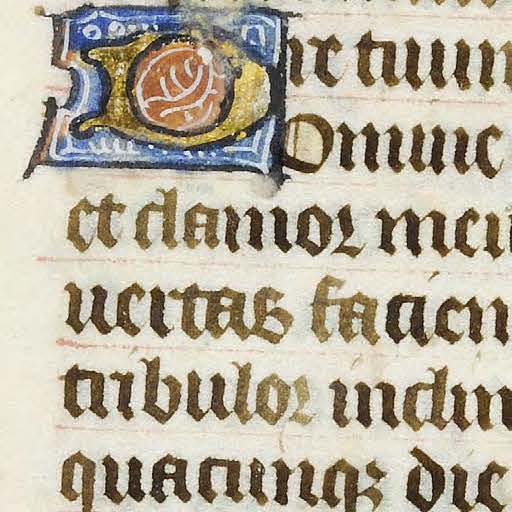 DOmine
et clamor meu
uertas facien
tribulor inclin
quacunqꝫ die